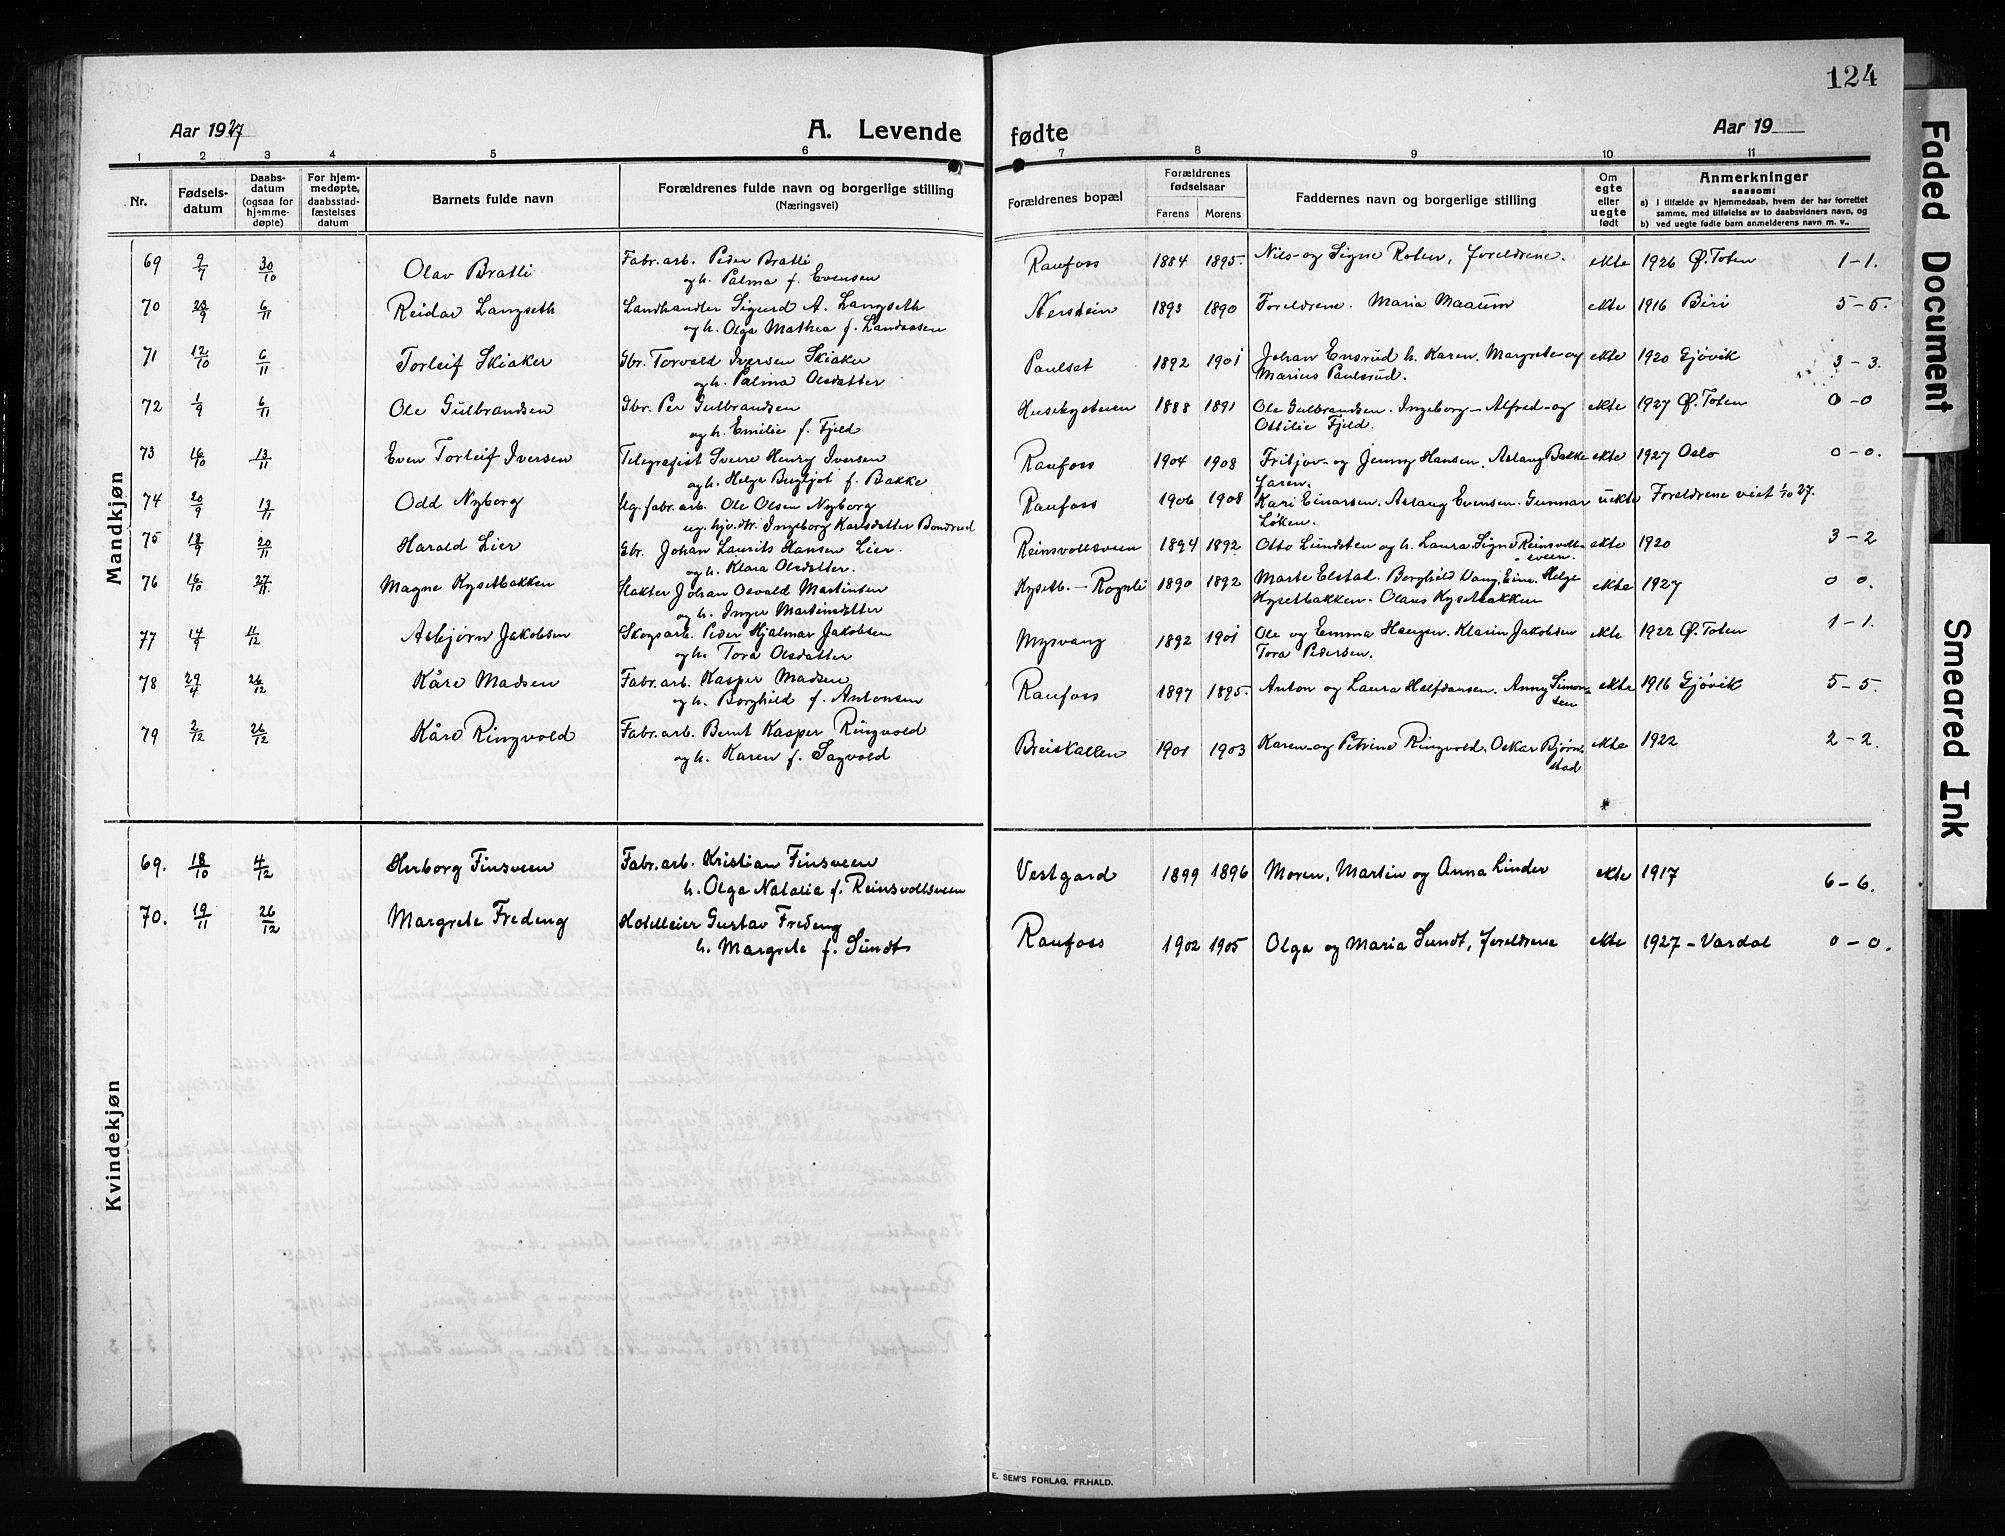 124
Aar 1927
A. Levende fødte
Aar 19
1 2 3 4 5 6 7 8 9 10 11
Nr.
Fødsels-
datum
Daabs-
datum
(ogsaa for
hjemme-
døpte)
For hjem-
medøpte,
daabsstad-
fæstelses
datum
Barnets fulde navn
Forældrenes fulde navn og borgerlige stilling
(Næringsvei)
Forældrenes bopæl
Forældrenes
fødselsaar
Farens Morens
Faddernes navn og borgerlige stilling
Om
egte
eller
uegte
født
Anmerkninger
saasom:
a) I tilfælde av hjemmedaab, hvem der har forrettet
samme, med tilføielse av to daabsvidners navn, og
b) ved uegte fødte barn anmelderens navn m. v..
Mandkjøn
69 9/7 30/10 Olav Bratli Fabr. arb. Peder Bratli
og h. Palma f. Evensen
Raufoss 1884 1895. Nils- og Signe Roten, foreldrene. ekte 1926 Ø. Toten 1-1.
70 6/11 Reidar Langseth Landhandler Sigurd A. Langseth
og h. Olga Mathea f. Landaasen
1893 1890 Foreldrene. Maria Maarum ekte 1916 Biri 5-5.
71 12/10 6/11 Torleif Skiaker Gbr. Torvald Iversen Skiaker
og h. Palma Olsdatter
Paulset 1892 1901 Johan Ensrud h. Karen. Margrete- og
Marius Paulsrud.
ekte 1920 Gjøvik 3-3.
72 1/9 6/11 Ole Gulbrandsen Gbr. Per Gulbrandsen
og h. Emilie f. Fjeld
1888 1891 Ole Gulbrandsen. Ingeborg- Alfred- og
Ottilie Fjeld.
ekte 1927 Ø. Toten 0-0
73 16/10 13/11 Even Torleif Iversen Telegrafist Sverre Henry Iversen
og h. Helga Bergljot f. Bakke
Raufoss 1904 1908 Fritjov- og Jenny Hansen. Aslaug Bakke
faren.
ekte 1927 Oslo 0-0.
74 20/9 13/11 Odd Nyborg Ug. fabr. arb. Ole Olsen Nyborg
ug. hjv. dtr. Ingeborg Karlsdatter Bondrud
Raufoss 1906 1908 Kari Einarsen. Aslaug Evensen. Gunnar
Løken.
uekte Foreldrene viet 1/10 27.
75 18/9 20/11 Harald Lier Gbr. Johan Laurits Hansen Lier.
og h. Klara Olsdatter.
Reinsvollsveen 1894 1892 Otto Lundsten og h. Laura. Signe Reinsvoll-
sveen.
ekte 1920 3-2
76 16/10 27/11. Magne Kysetbakken Vakter Johan Osvald Martinsen
og h. Inger Martinsdtter
Kysetb. - Rognli 1890 1892 Marte Elstad. Borghild Vang, Einar Helge
Kysetbakken. Olaus Kysetbakken
ekte 1927 0 0.
77 14/9 11/12 Asbjørn Jakobsen Skogsarb. Peder Hjalmar Jakobsen
og h. Tora Olsdatter
Mysvang 1892 1901 Ole og Emma Haugen. Klarin Jakobsen
Tora Pedersen.
ekte 1922 Ø. Toten 1-1.
78 29/4 26/12 Kåre Madsen Fabr. arb. Kasper Madsen
og h. Borghild f. Antonsen
Raufoss 1897 1895. Anton og Laura Halfdansen. Anny Simon-
sen
ekte 1916 Gjøvik 5-5.
79 2/12 26/12 Kåre Ringvold Fabr. arb. Bernt Kasper Ringvold
og h. Karen f. Sagvold
Breiskallen 1901 1903 Karen- og Petrine Ringvold. Oskar Bjørn-
stad
ekte 1922 2-2.
Kvindekjøn
69. 18/10 4/12 Herborg Finsveen Fabr. arb. Kristian Finsveen
h. Olga Natalia f. Reinsvollsveen
Vestgard 1899 1896 Moren, Martin og Anna Linder ekte 1917 6-6.
70. 19/11 26/12 Margrete Fredeng Hotelleier Gustav Fredeng
h. Margrete f. Sundt
Raufoss 1902 1905 Olga og Maria Sundt, foreldrene ekte 1927 - Vardal 0-0.
E. SEM'S FORLAG, FR.HALD.
Faded Document
Smeared Ink